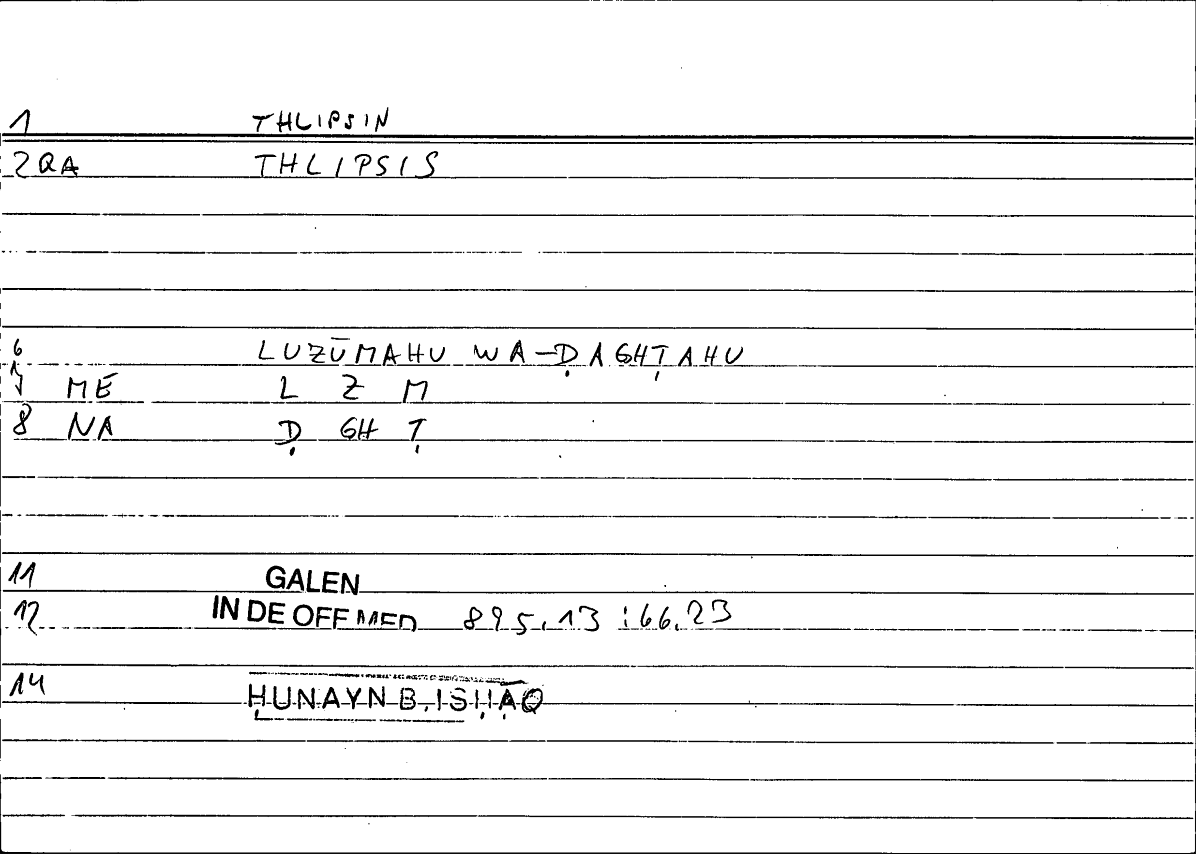 1 THLIPSIN
2 QA THLIPSIS
6 LUZŪMAHU WA-ḌAGHṬAHU
7 ME L Z M
8 NA Ḍ GH Ṭ
11 GALEN
12 IN DE OFF MED 895.13 : 66.23
14 ḤUNAYN B. ISḤĀQ